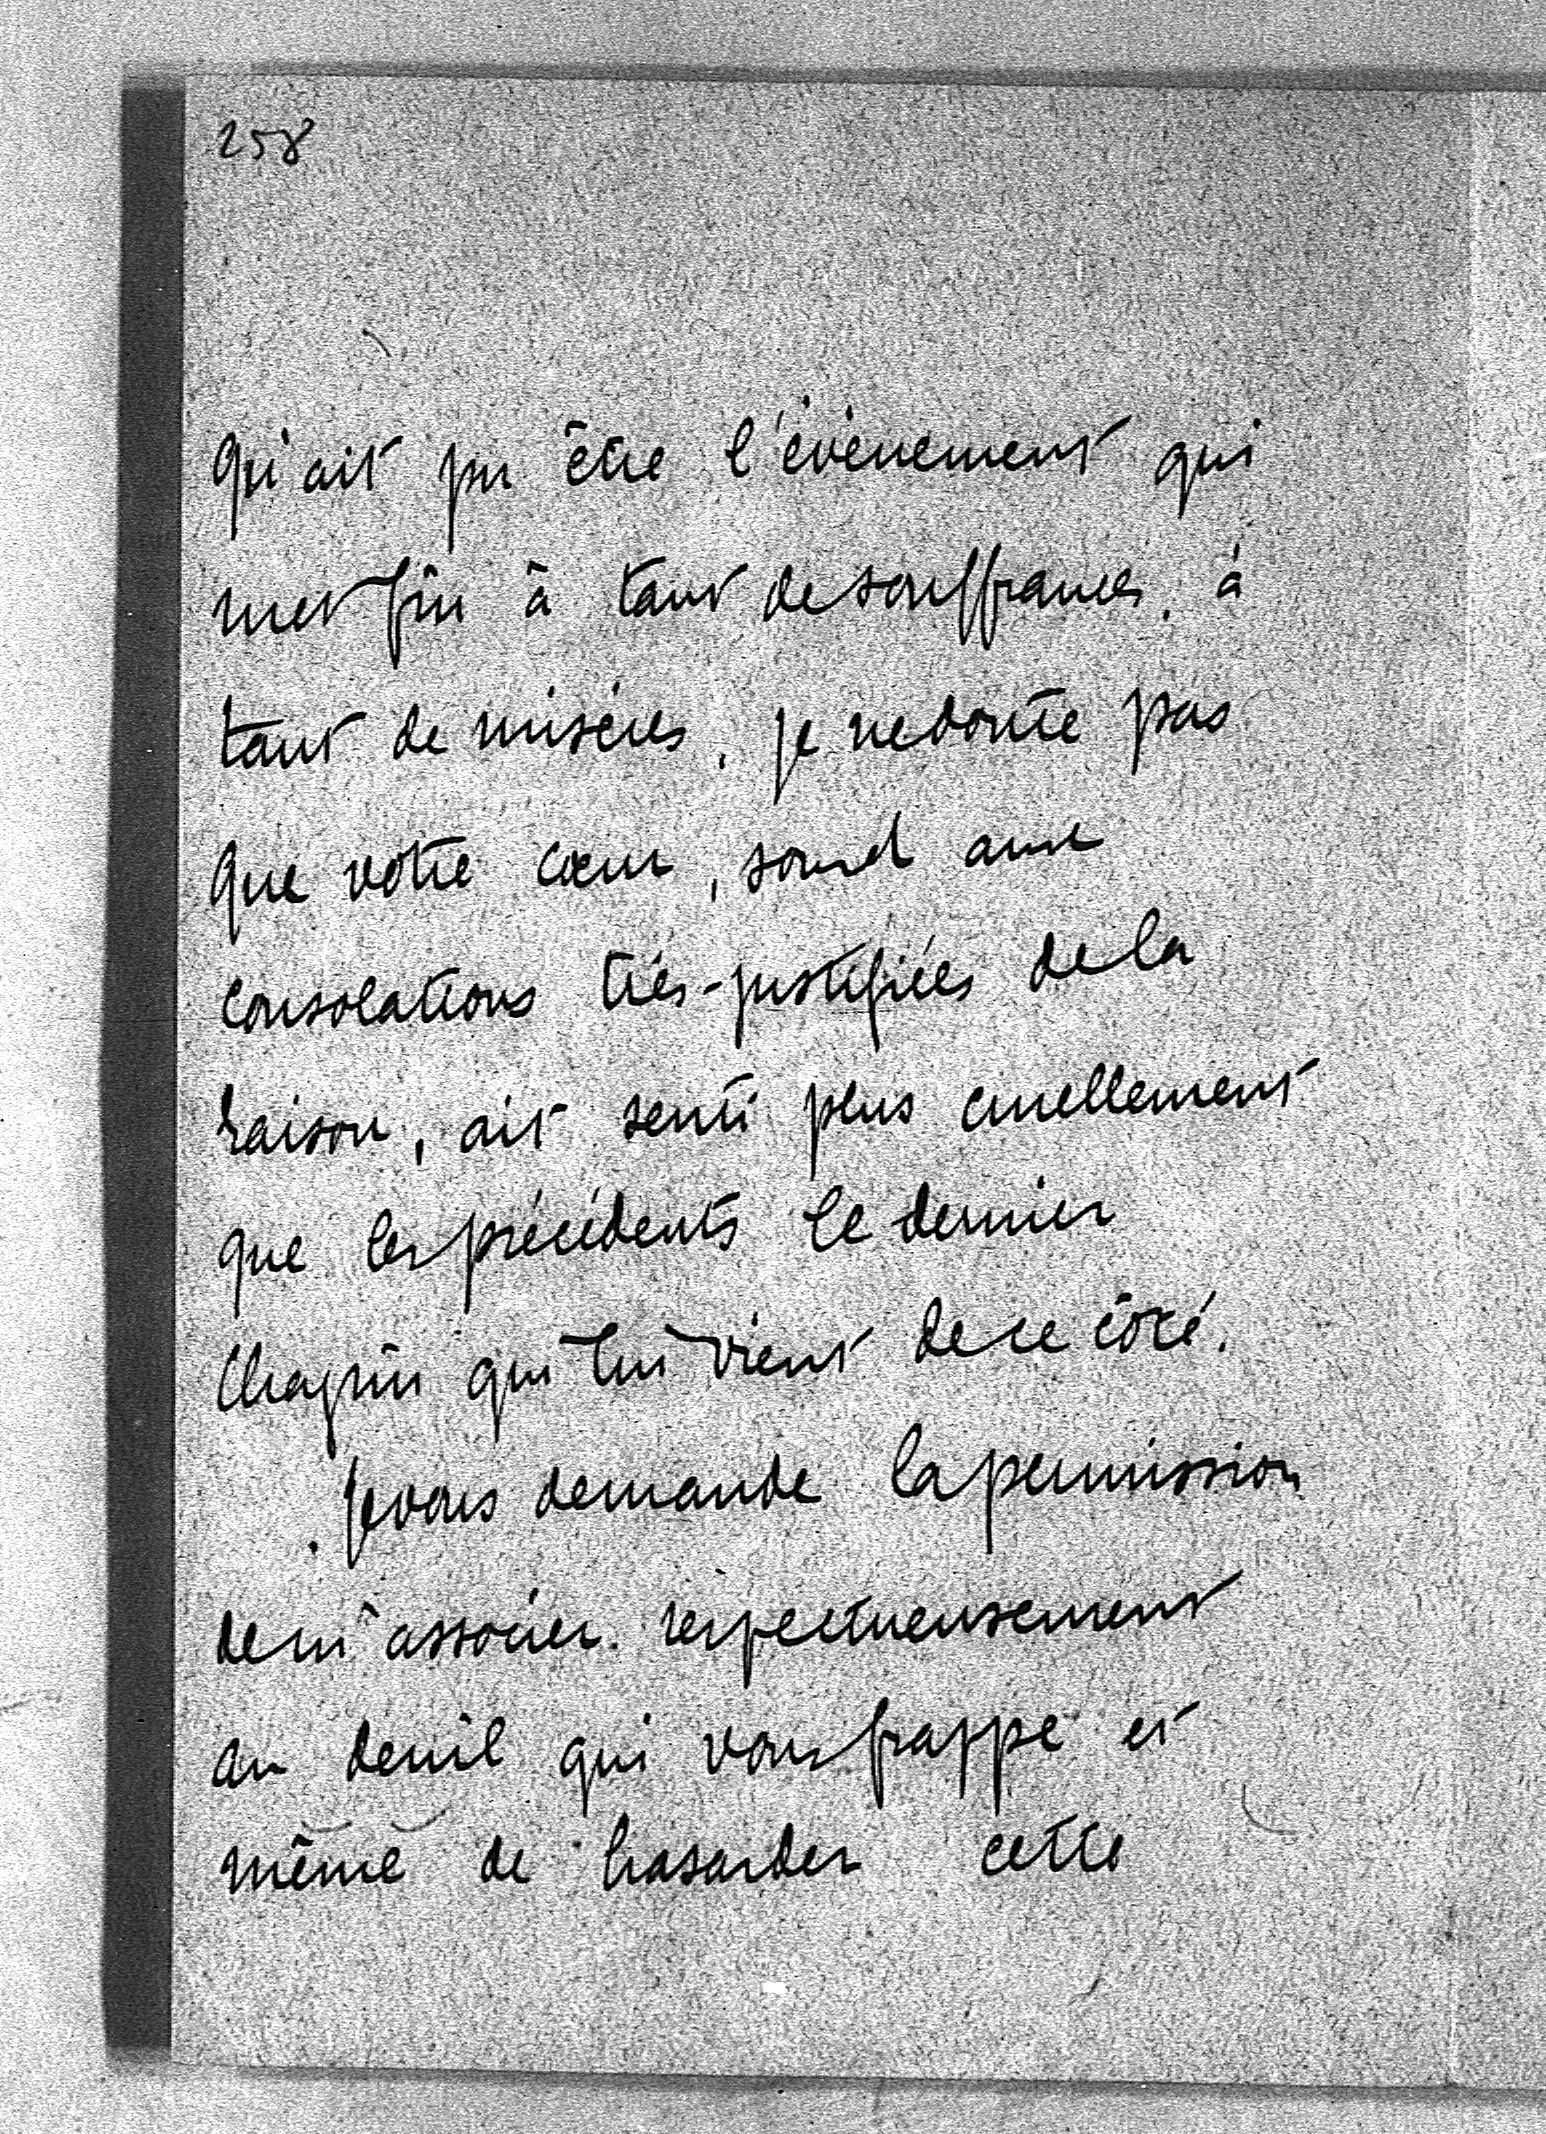 258
qu'ait pu être l'évènement qui
met fin à tant de souffrances, à
tant de misères, je ne doute pas
que votre cœur, sourd aux
consolations très-justifiées de la
raison, ait senti plus cruellement
que les précédents le dernier
chagrin qui lui vient de ce côté.
Je vous demande la permission
de m'associer respectueusement
au deuil qui vous frappe et
même de hasarder cette